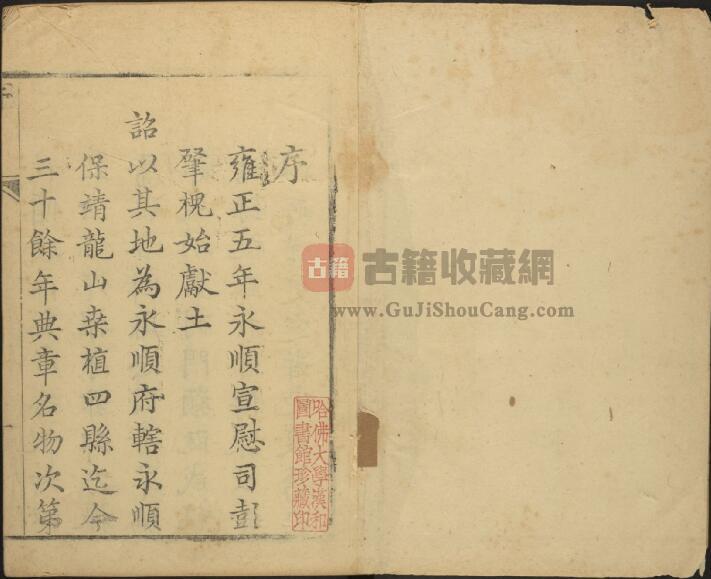 序
雍正五年永順宣慰司彭
肇槐始獻土
詔以其地為永順府轄永順
保靖龍山桑植四縣迄今
三十餘年典章名物次第
哈佛大學漢和
圖書館珍藏印
古籍
古籍收藏網
www.GuJiShouCang.com